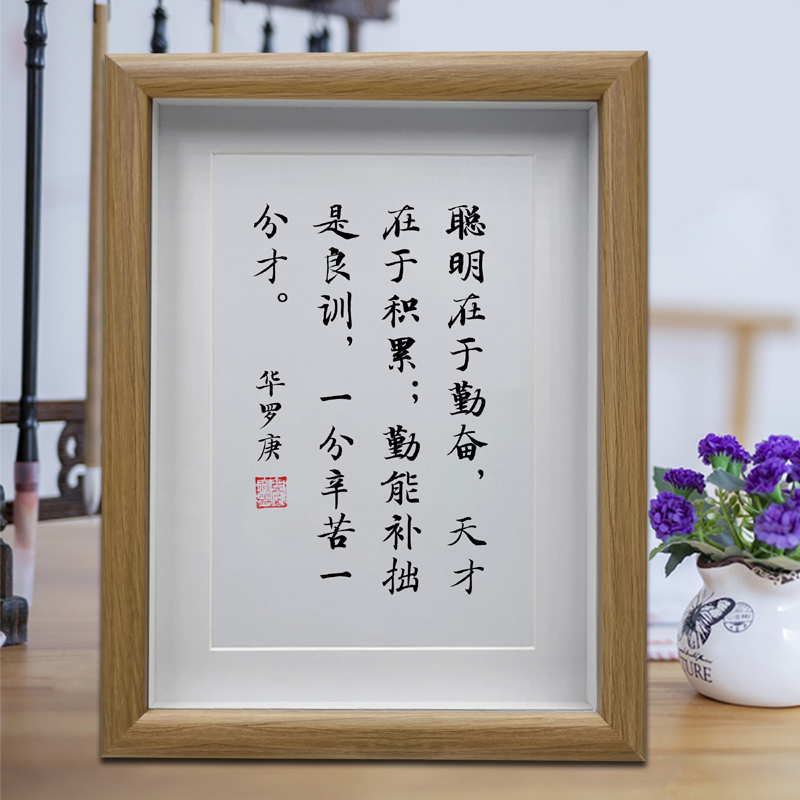 聪明在于勤奋，天才
在于积累；勤能补拙
是良训，一分辛苦一
分才。
华罗庚
TURE